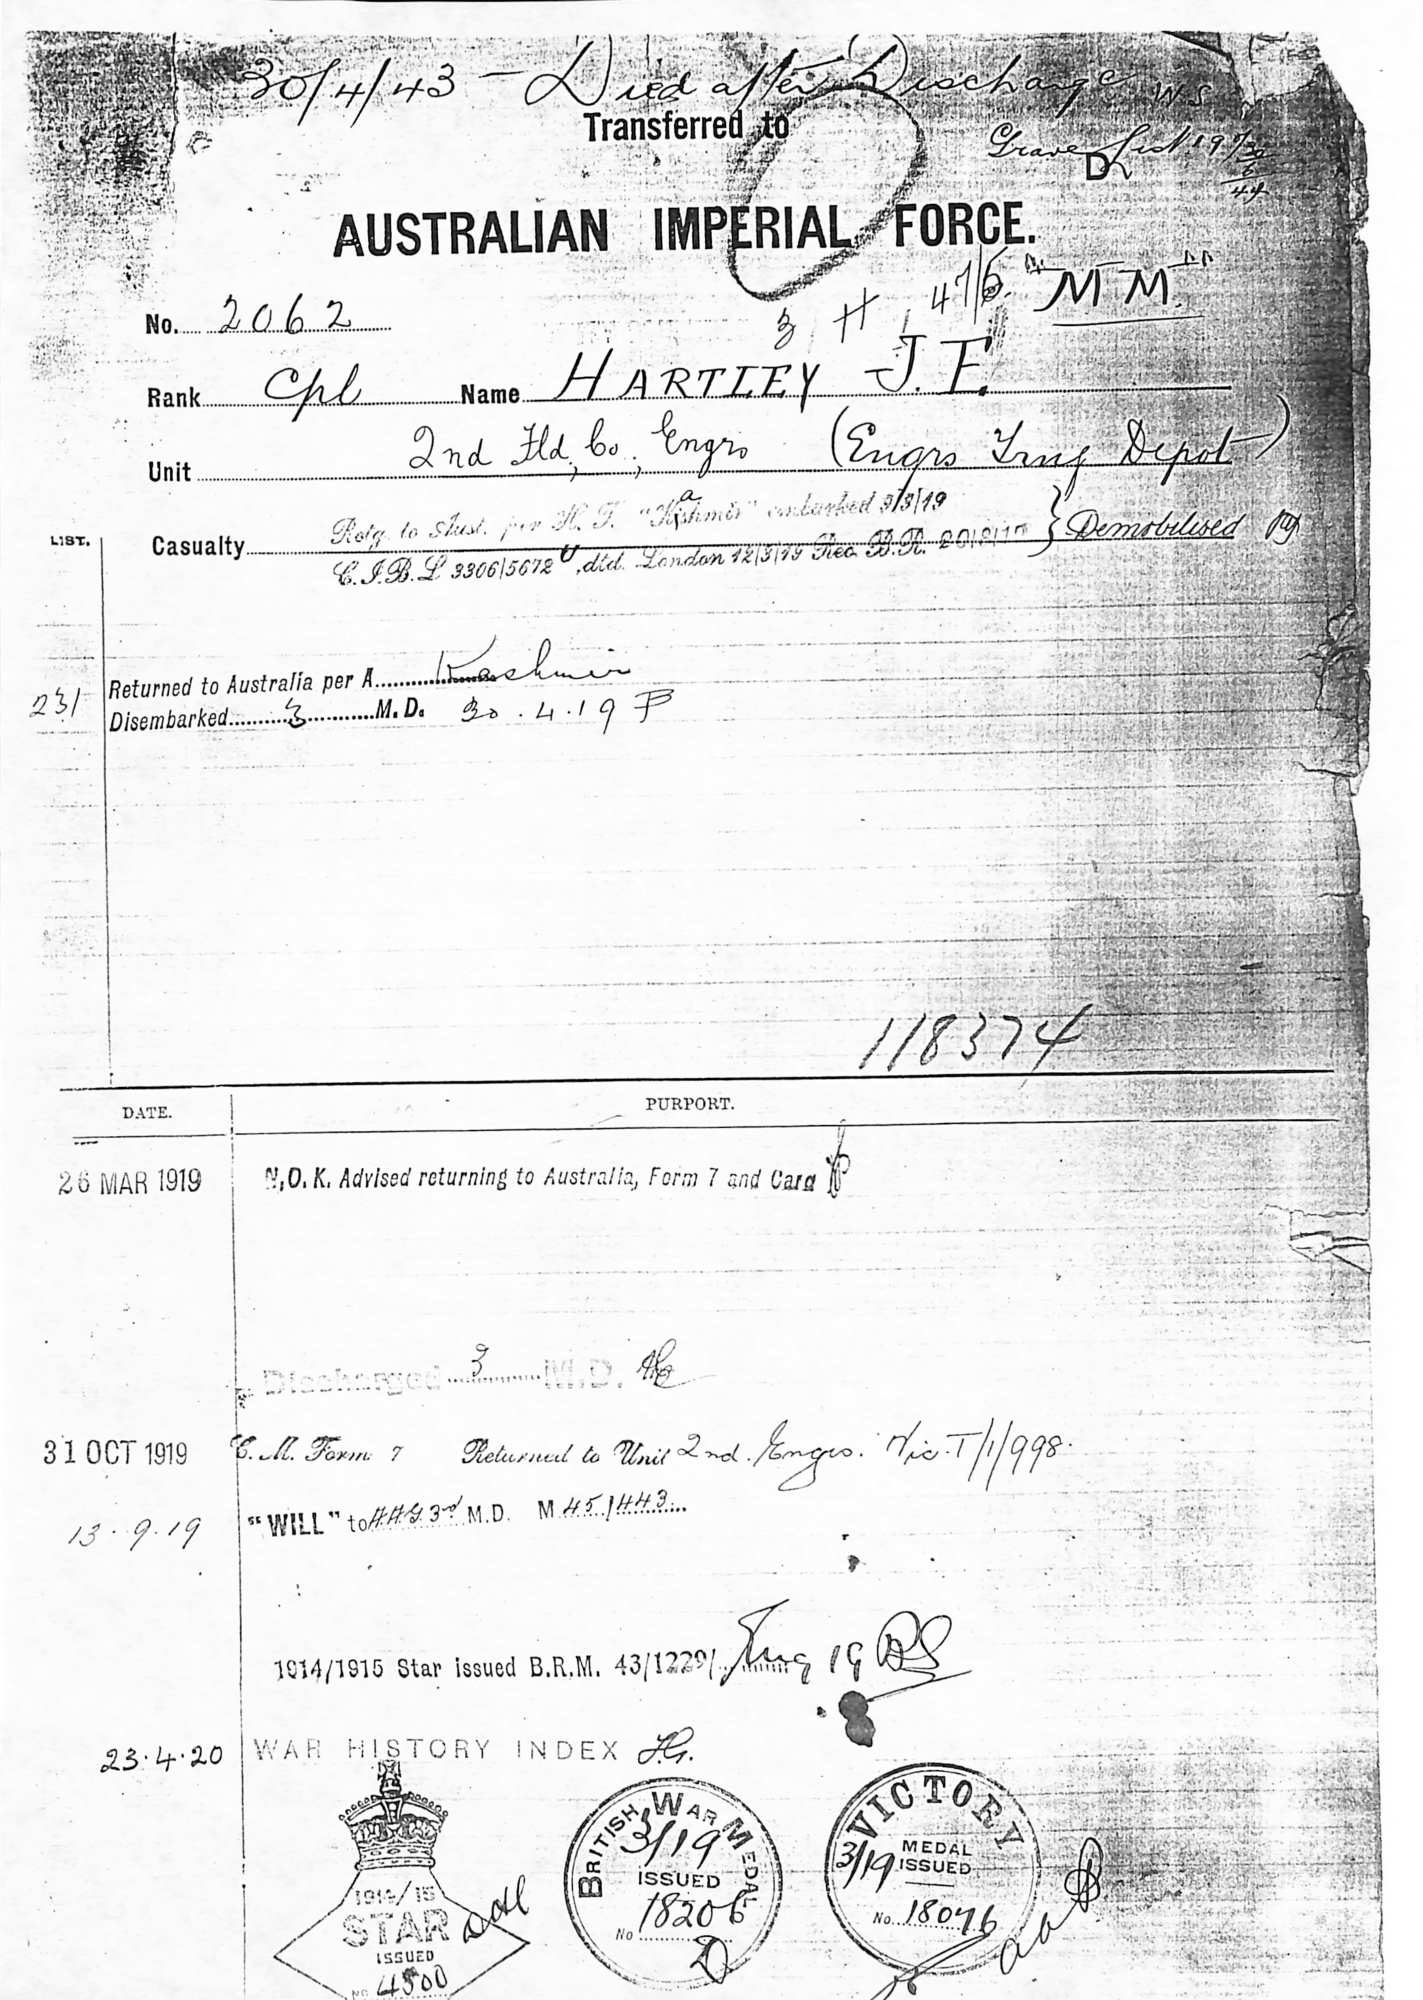 30/4/43 - Died after Discharge W S
Transferred to
Graves List 19
D
AUSTRALIAN IMPERIAL FORCE.
3 H, 475. "MM."
No. 2062
Rank Cpl Name HARTLEY J. E.
Unit 2nd Fld, Co, Engrs (Engrs Trng Depot)
LIST. Casualty Retg. to Aust. per H. T. "Kashmir" embarked 3/3/19
C.I.B.L 3306/5672, dtd. London 12/3/19 Rec. B.R. } Demobilised
231 Returned to Australia per A Kashmir
Disembarked 3 M.D. 30.4.19
118374
DATE. PURPORT.
26 MAR 1919 N.O.K. Advised returning to Australia, Form 7 and Card
Discharged 3 M.D.
31 OCT 1919 C. M. Form 7 Returned to Unit 2nd. Engrs. Vic. T/1/998.
13.9.19 "WILL" to AAG 3rd M.D. M 45/443
1914/1915 Star issued B.R.M. 43/1229/ 19
23.4.20 WAR HISTORY INDEX
1914/15 STAR ISSUED No 4500
BRITISH WAR MEDAL 3/19 ISSUED No 18206
VICTORY MEDAL 3/19 ISSUED No. 18046